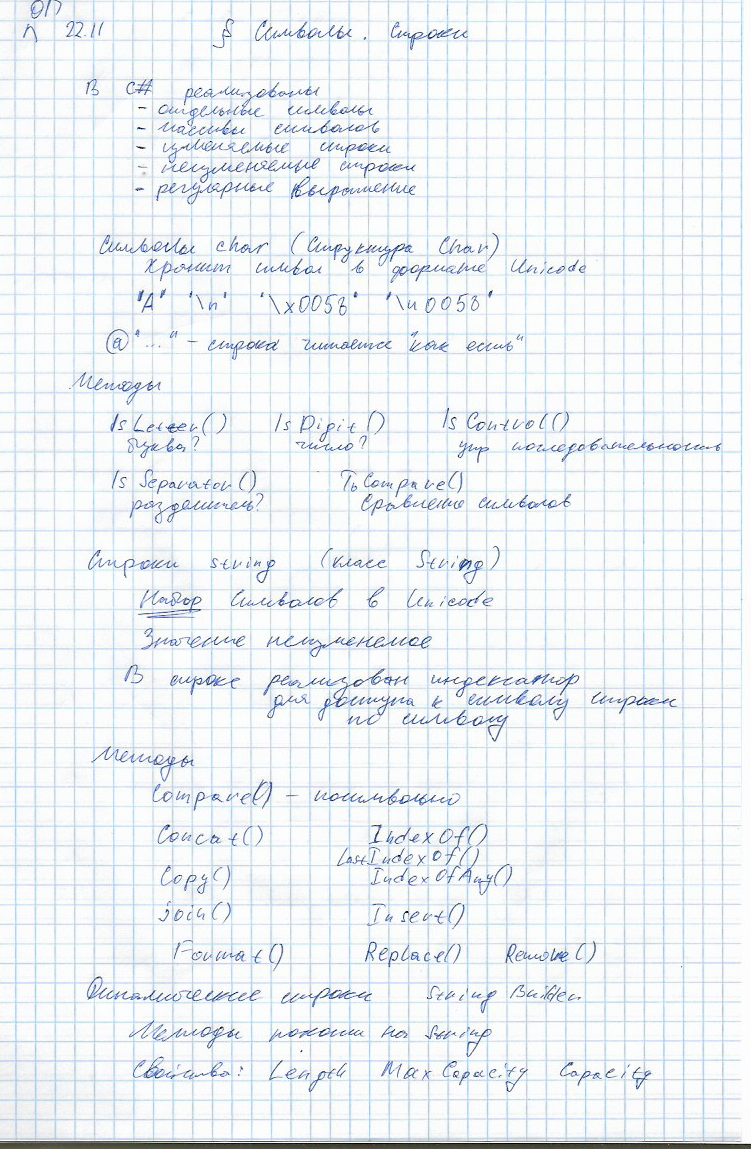 ОП
п 22.11 § Символы. Строки
В C# реализованы
- отдельные символы
- массивы символов
- изменяемые строки
- неизменяемые строки
- регулярные выражение
Символы char (Структура Char)
Хранит символ в формате Unicode
"A" '\n' '\x0058' '\u0058'
@"..." - строка читается "как есть"
Методы
IsLetter() IsDigit() IsControl()
буква? число? упр последовательность
IsSeparator() ToCompare()
разделитель? Сравнение символов
Строки string (класс String)
Набор символов в Unicode
Значение неизменяемое
В строке реализован индексатор
для доступа к символу строки
по символу
Методы
Compare() - посимвольно
Concat() IndexOf()
LastIndexOf()
Copy() IndexOfAny()
join() Insert()
Format() Replace() Remove()
Динамические строки String Builder
Методы похожи на String
Свойства: Length MaxCapacity Capacity